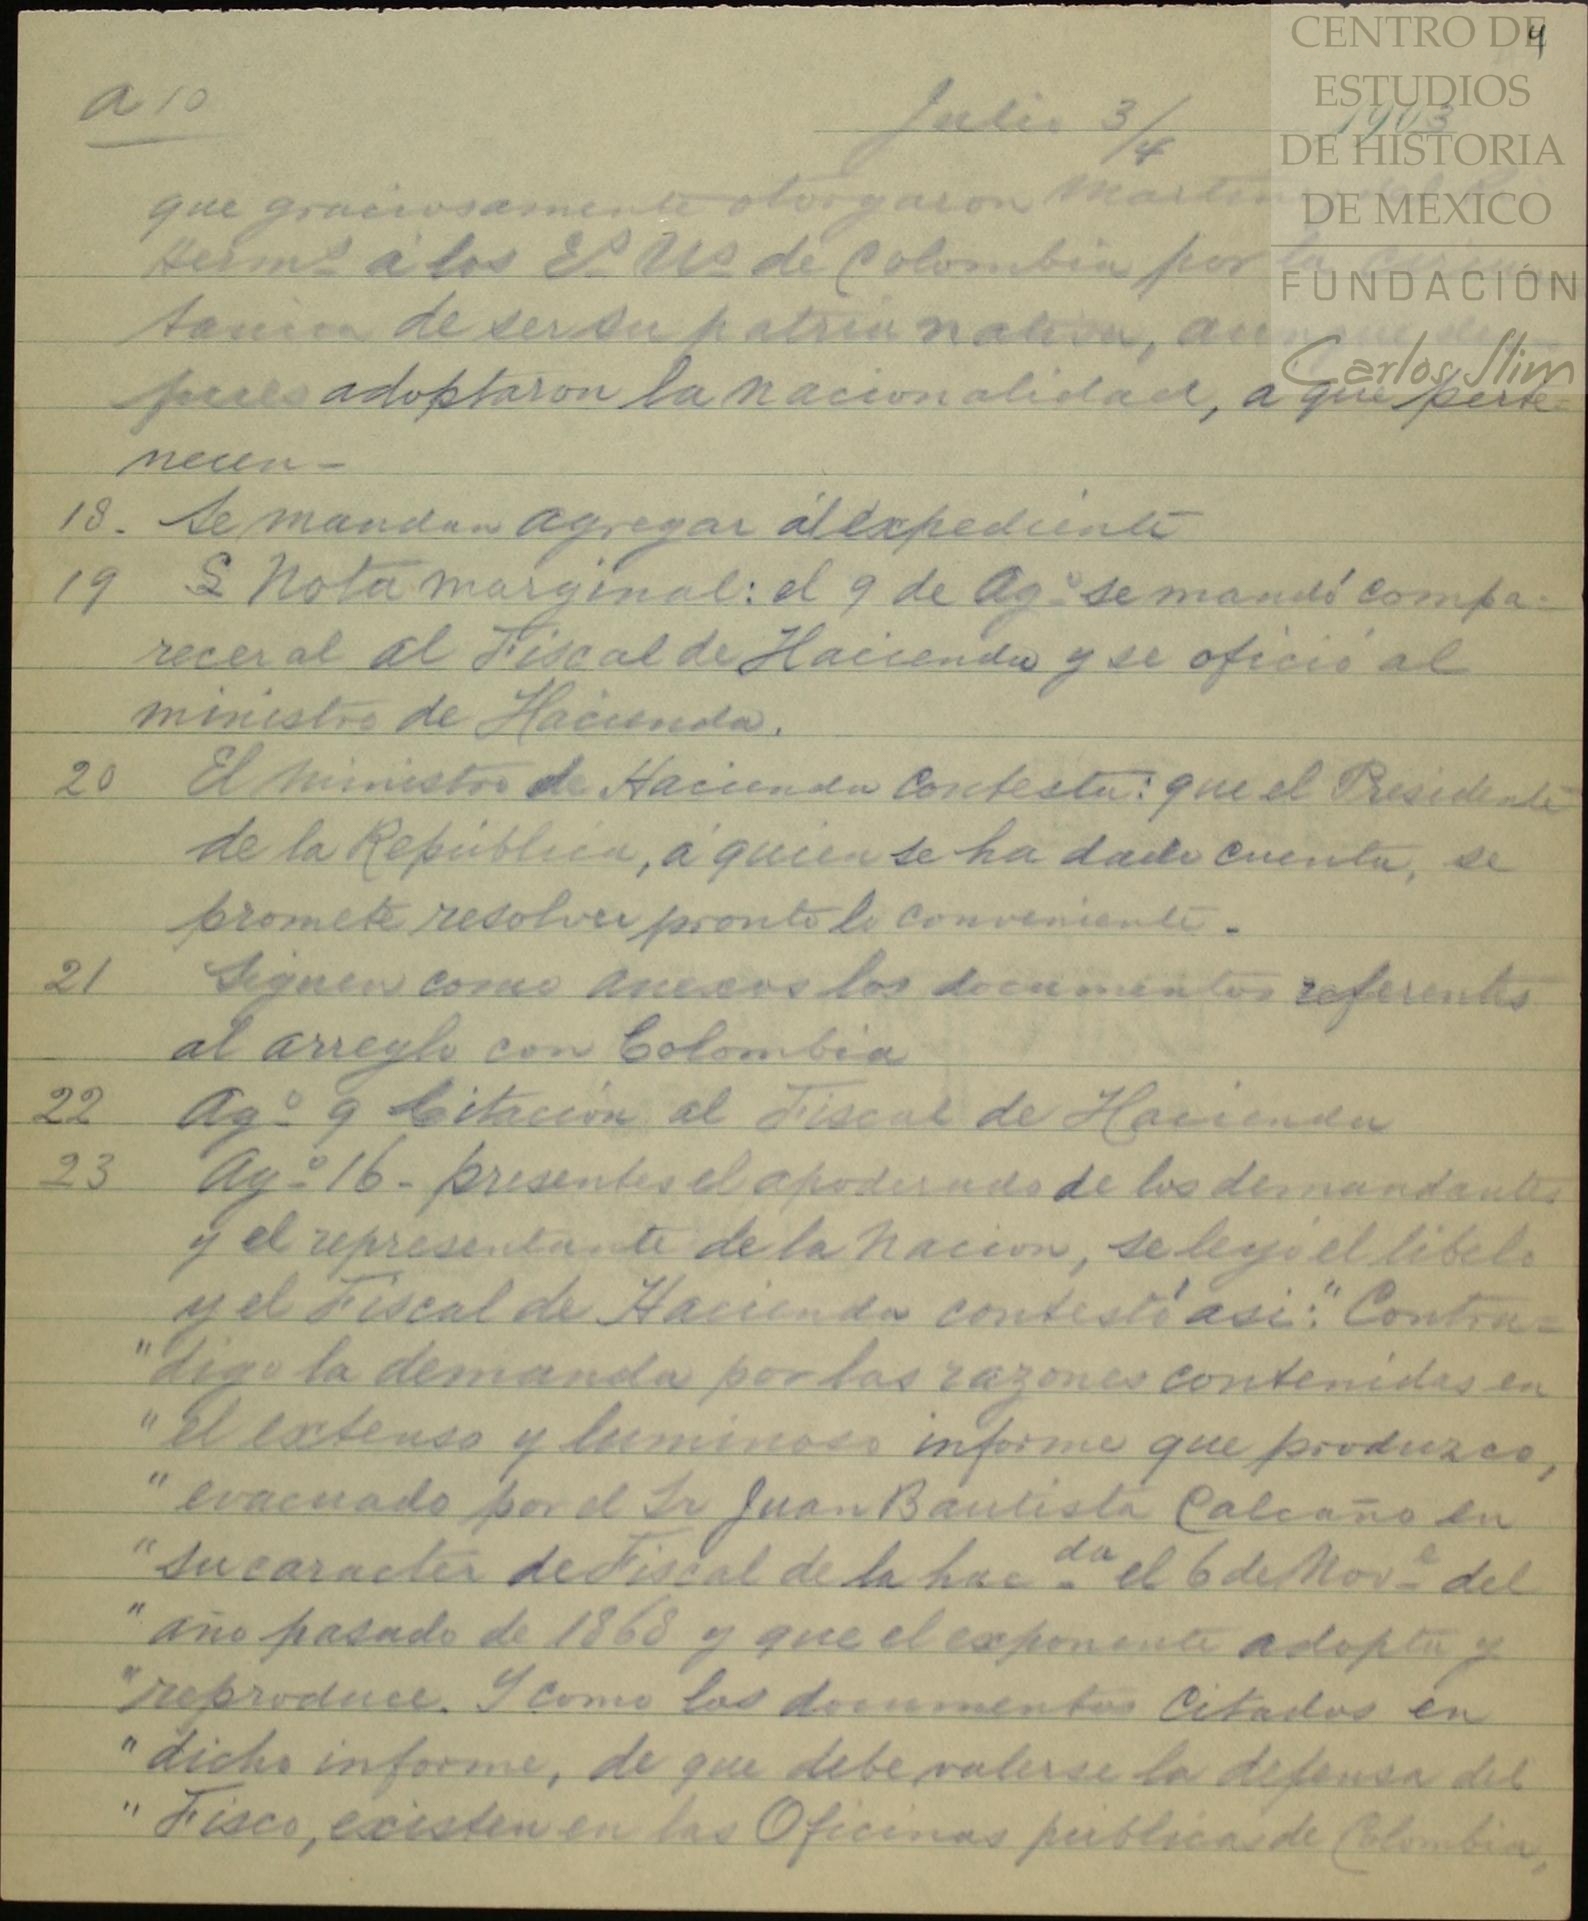 CENTRO DE
ESTUDIOS
DE HISTORIA
DE MEXICO
FUNDACIÓN
Carlos Slim
4
a 10
Julio 3/4 1903
que graciosamente otorgaron Martin
Herm.s á los E.s U.s de Colombia por la
tancia de ser su patria nativa, aunque des-
pues adoptaron la nacionalidad, a que perte-
necen -
18. Se mandan agregar al expediente
19 Nota marginal: el 9 de Ag.o se mandó compa-
recer al al Fiscal de Hacienda y se ofició al
ministro de Hacienda.
20 El ministro de Hacienda contesta: que el Presidente
de la República, á quien se ha dado cuenta, se
promete resolver pronto lo conveniente.
21 Siguen como anexos los documentos referentes
al arreglo con Colombia
22 Ag.o 9 Citación al Fiscal de Hacienda
23 Ag.o 16 - presentes el apoderado de los demandantes
y el representante de la Nacion, se leyó el libelo
y el Fiscal de Hacienda contestó asi: "Contra-
" digo la demanda por las razones contenidas en
" el extenso y luminoso informe que produzco,
" evacuado por el Sr Juan Bautista Calcaño en
" su caracter de Fiscal de la hac.da el 6 de Nov.e del
" año pasado de 1868 y que el exponente adopta y
" reproduce. Y como los documentos citados en
" dicho informe, de que debe valerse la defensa del
" Fisco, existen en las Oficinas públicas de Colombia,